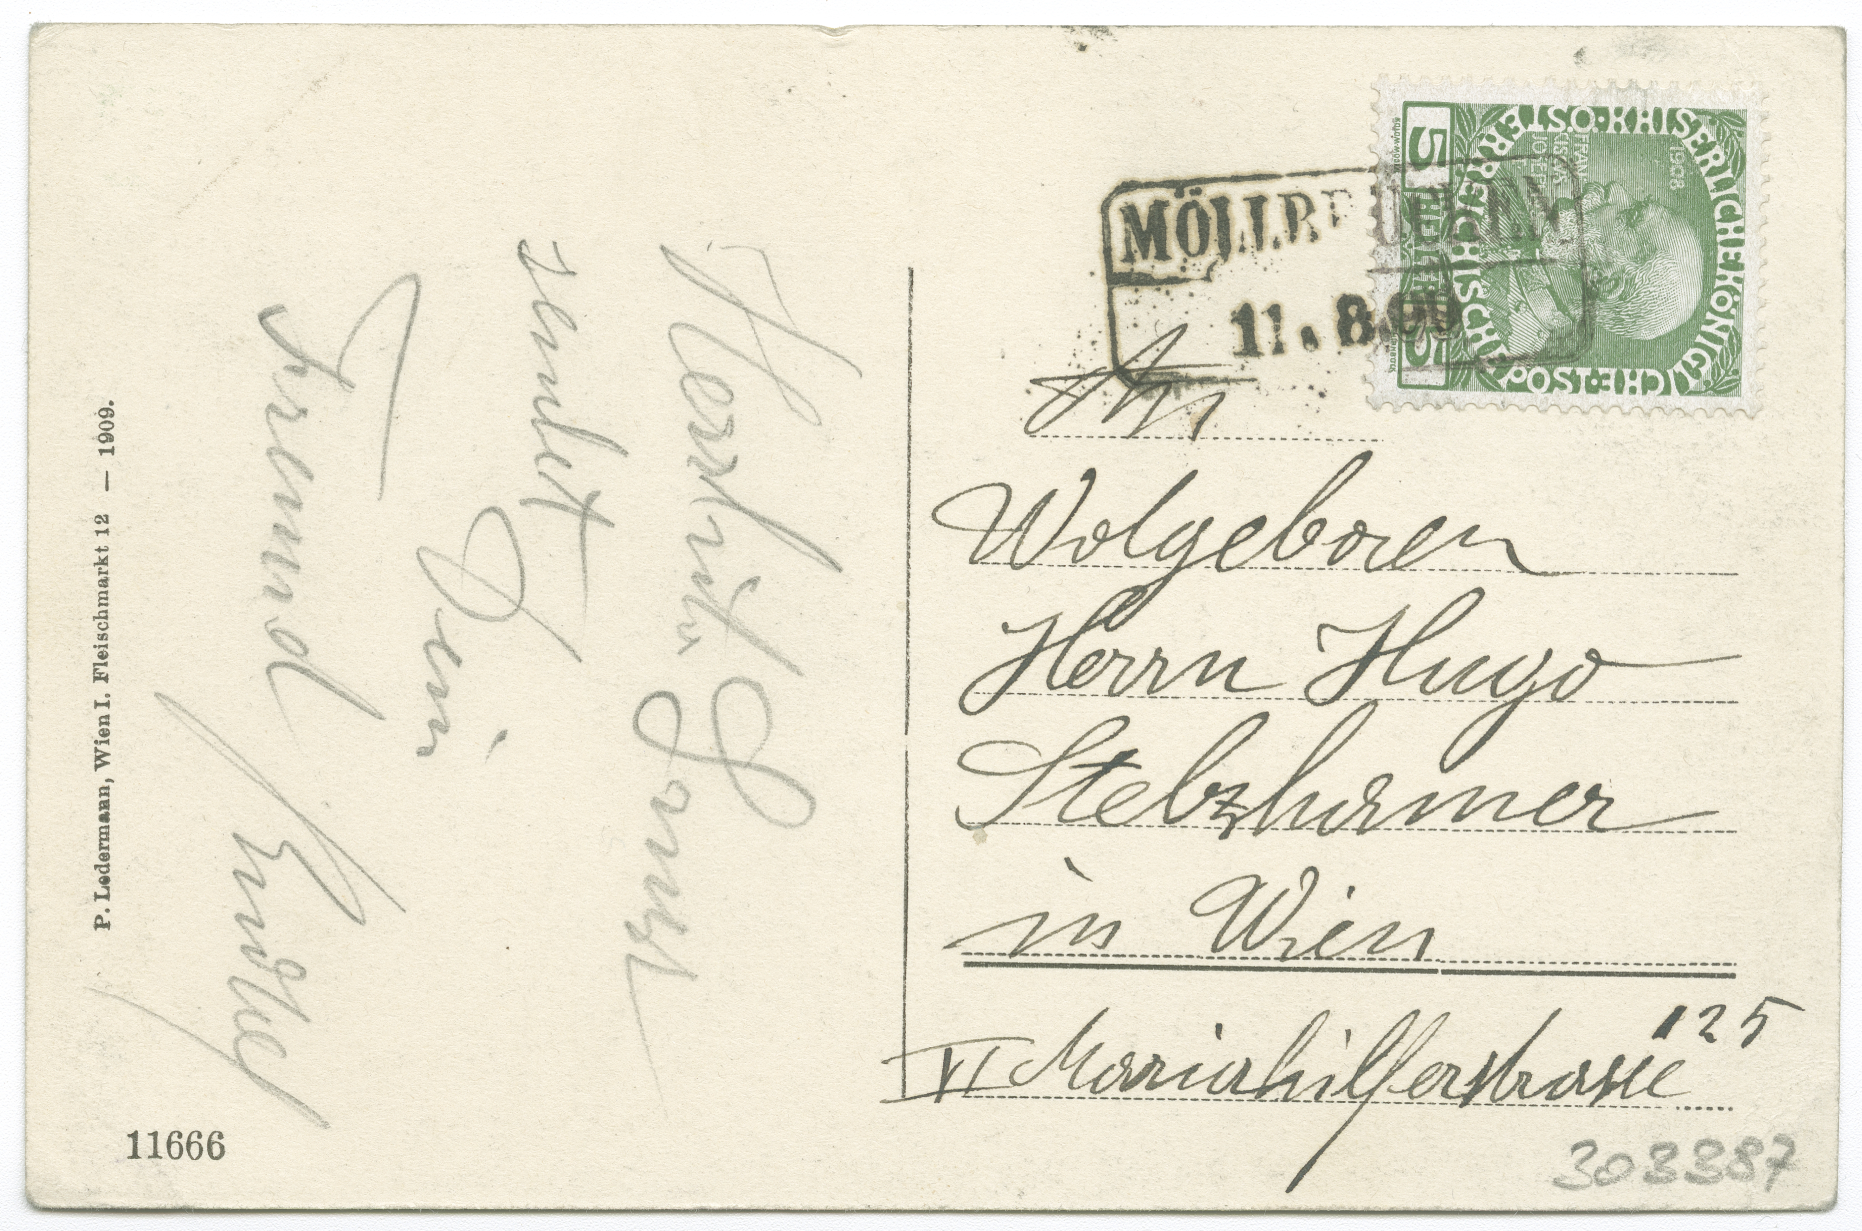 Herzlichen Gruss
sendet
Dein
Freund
P. Ledermann, Wien I. Fleischmarkt 12 — 1909.
11666
MÖLLBRÜCKEN
11.8.09
KAISERLICHE KÖNIGLICHE POST
ÖSTERREICHISCHE
1908
FRANZ
JOSEPH
5 HELLER 5
An
Wolgeboren
Herrn Hugo
Stelzhamer
in Wien
VI Mariahilferstrasse 125
303387